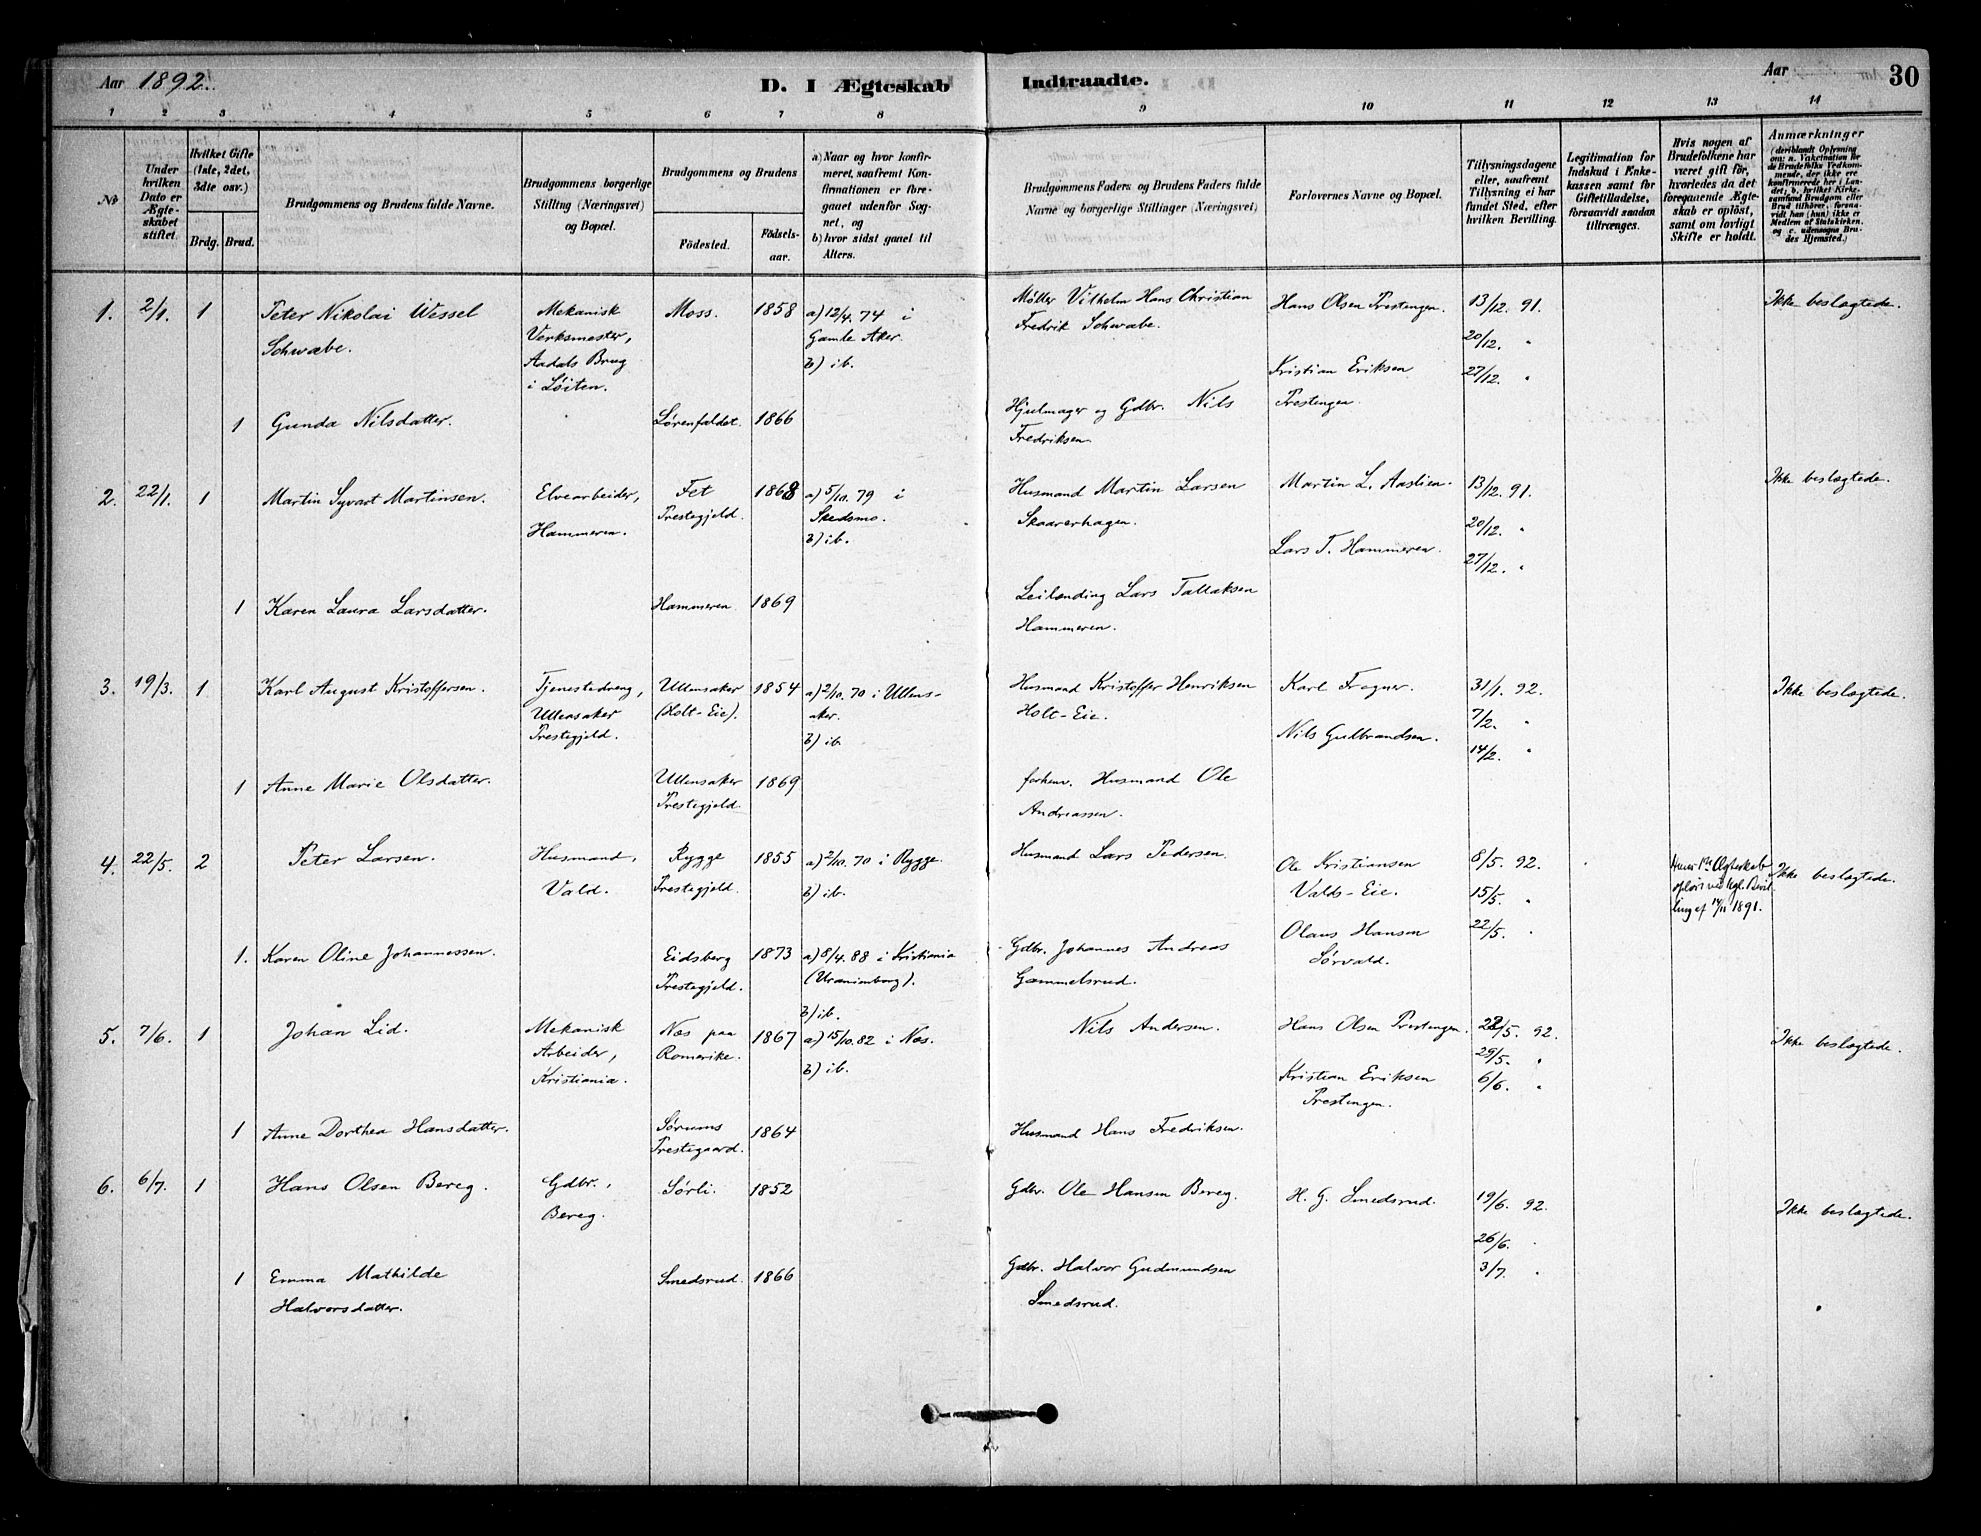 Aar 1892. D. I Ægteskab Indtraadte. Aar 30
1 2 3 4 5 6 7 8 9 10 11 12 13 14
No
Under hvilken Dato er Ægteskabet stiftet.
Hvilket Gifte (1ste, 2det, 3dte osv.)
Brdg. Brud.
Brudgommens og Brudens fulde Navne.
Brudgommens borgerlige Stilling (Næringsvei) og Bopæl.
Brudgommens og Brudens
Födested. Födselsaar.
a) Naar og hvor konfirmeret, saafremt Konfirmationen er foregaaet udenfor Sognet, og
b) hvor sidst gaaet til Alters.
Brudgommens Faders og Brudens Faders fulde Navne og borgerlige Stillinger (Næringsvei)
Forlovernes Navne og Bopæl.
Tillysningsdagene eller, saafremt Tillysning ei har fundet Sted, efter hvilken Bevilling.
Legitimation for Indskud i Enkekassen samt for Giftetilladelse, forsaavidt saadan tiltrænges.
Hvis nogen af Brudefolkene har været gift för, hvorledes da det foregaaende Ægteskab er oplöst, samt om lovligt Skifte er holdt.
Anmærkninger (deriblandt Oplysning om: a. Vakcination for de Brudefolks Vedkommende, der ikke ere konfirmerede her i Landet; b. hvilket Kirkesamfund Brudgom eller Brud tilhörer, forsaavidt han (hun) ikke er Medlem af Statskirken, og c. udensogns Brudes Hjemsted.)
1. 2/1. 1 Peter Nikolai Wessel Schwabe.
Mekanisk Verksmester, Aadals Brug i Løiten.
Moss. 1858 a) 12/4. 74 i Gamle Aker. b) ib.
Møller Vilhelm Hans Christian Fredrik Schwabe.
Hans Olsen Prestengen. 13/12. 91.
20/12. "
Kristian Eriksen Prestengen. 27/12. "
Ikke beslægtede.
1 Gunda Nilsdatter. Lørenfaldet. 1866
Hjulmager og Gdbr. Nils Fredriksen.
2. 22/1. 1 Martin Syvart Martinsen.
Elvearbeider, Hammeren.
Fet Prestegjeld. 1868 a) 5/10. 79 i Skedsmo. b) ib.
Husmand Martin Larsen Skaarerhagen.
Martin L. Aaslien. 13/12. 91.
20/12. "
Lars T. Hammeren. 27/12. "
Ikke beslægtede.
1 Karen Laura Larsdatter. Hammeren 1869
Leilænding Lars Tallaksen Hammeren.
3. 19/3. 1 Karl August Kristoffersen.
Tjenestedreng, Ullensaker Prestegjeld.
Ullensaker (Holt-Eie). 1854 a) 2/10. 70 i Ullensaker. b) ib.
Husmand Kristoffer Henriksen Holt-Eie.
Karl Frogner. 31/1. 92.
7/2. "
Nils Gulbrandsen. 14/2. "
Ikke beslægtede.
1 Anne Marie Olsdatter. Ullensaker Prestegjeld. 1869
forhenv. Husmand Ole Andreassen.
4. 22/5. 2 Peter Larsen.
Husmand, Vald.
Rygge Prestegjeld. 1855 a) 2/10. 70 i Rygge. b) ib.
Husmand Lars Pedersen.
Ole Kristiansen Valds-Eie. 8/5. 92.
15/5. "
Olaus Hansen Sørvald. 22/5. "
Ægteskab ved kgl. af 1891.
Ikke beslægtede.
1. Karen Oline Johannessen. Eidsberg Prestegjeld. 1873 a) 8/4. 88 i Kristiania (Uranienborg). b) ib.
Gdbr. Johannes Andreas Gammelsrud.
5. 7/6. 1 Johan Lid.
Mekanisk Arbeider, Kristiania.
Nes paa Romerike. 1867 a) 15/10. 82 i Nes. b) ib.
Nils Andersen.
Hans Olsen Prestengen. 22/5. 92.
29/5. "
Kristian Eriksen Prestengen. 6/6. "
Ikke beslægtede.
1 Anne Dorthea Hansdatter. Sørums Prestegaard. 1864
Husmand Hans Fredriksen.
6. 6/7. 1 Hans Olsen Bereg.
Gdbr., Bereg.
Sørli. 1852
Gdbr. Ole Hansen Bereg.
H. G. Smedsrud. 19/6. 92.
26/6. "
3/7. "
Ikke beslægtede.
1 Emma Mathilde Halvorsdatter. Smedsrud. 1866
Gdbr. Halvor Gudmundsen Smedsrud.